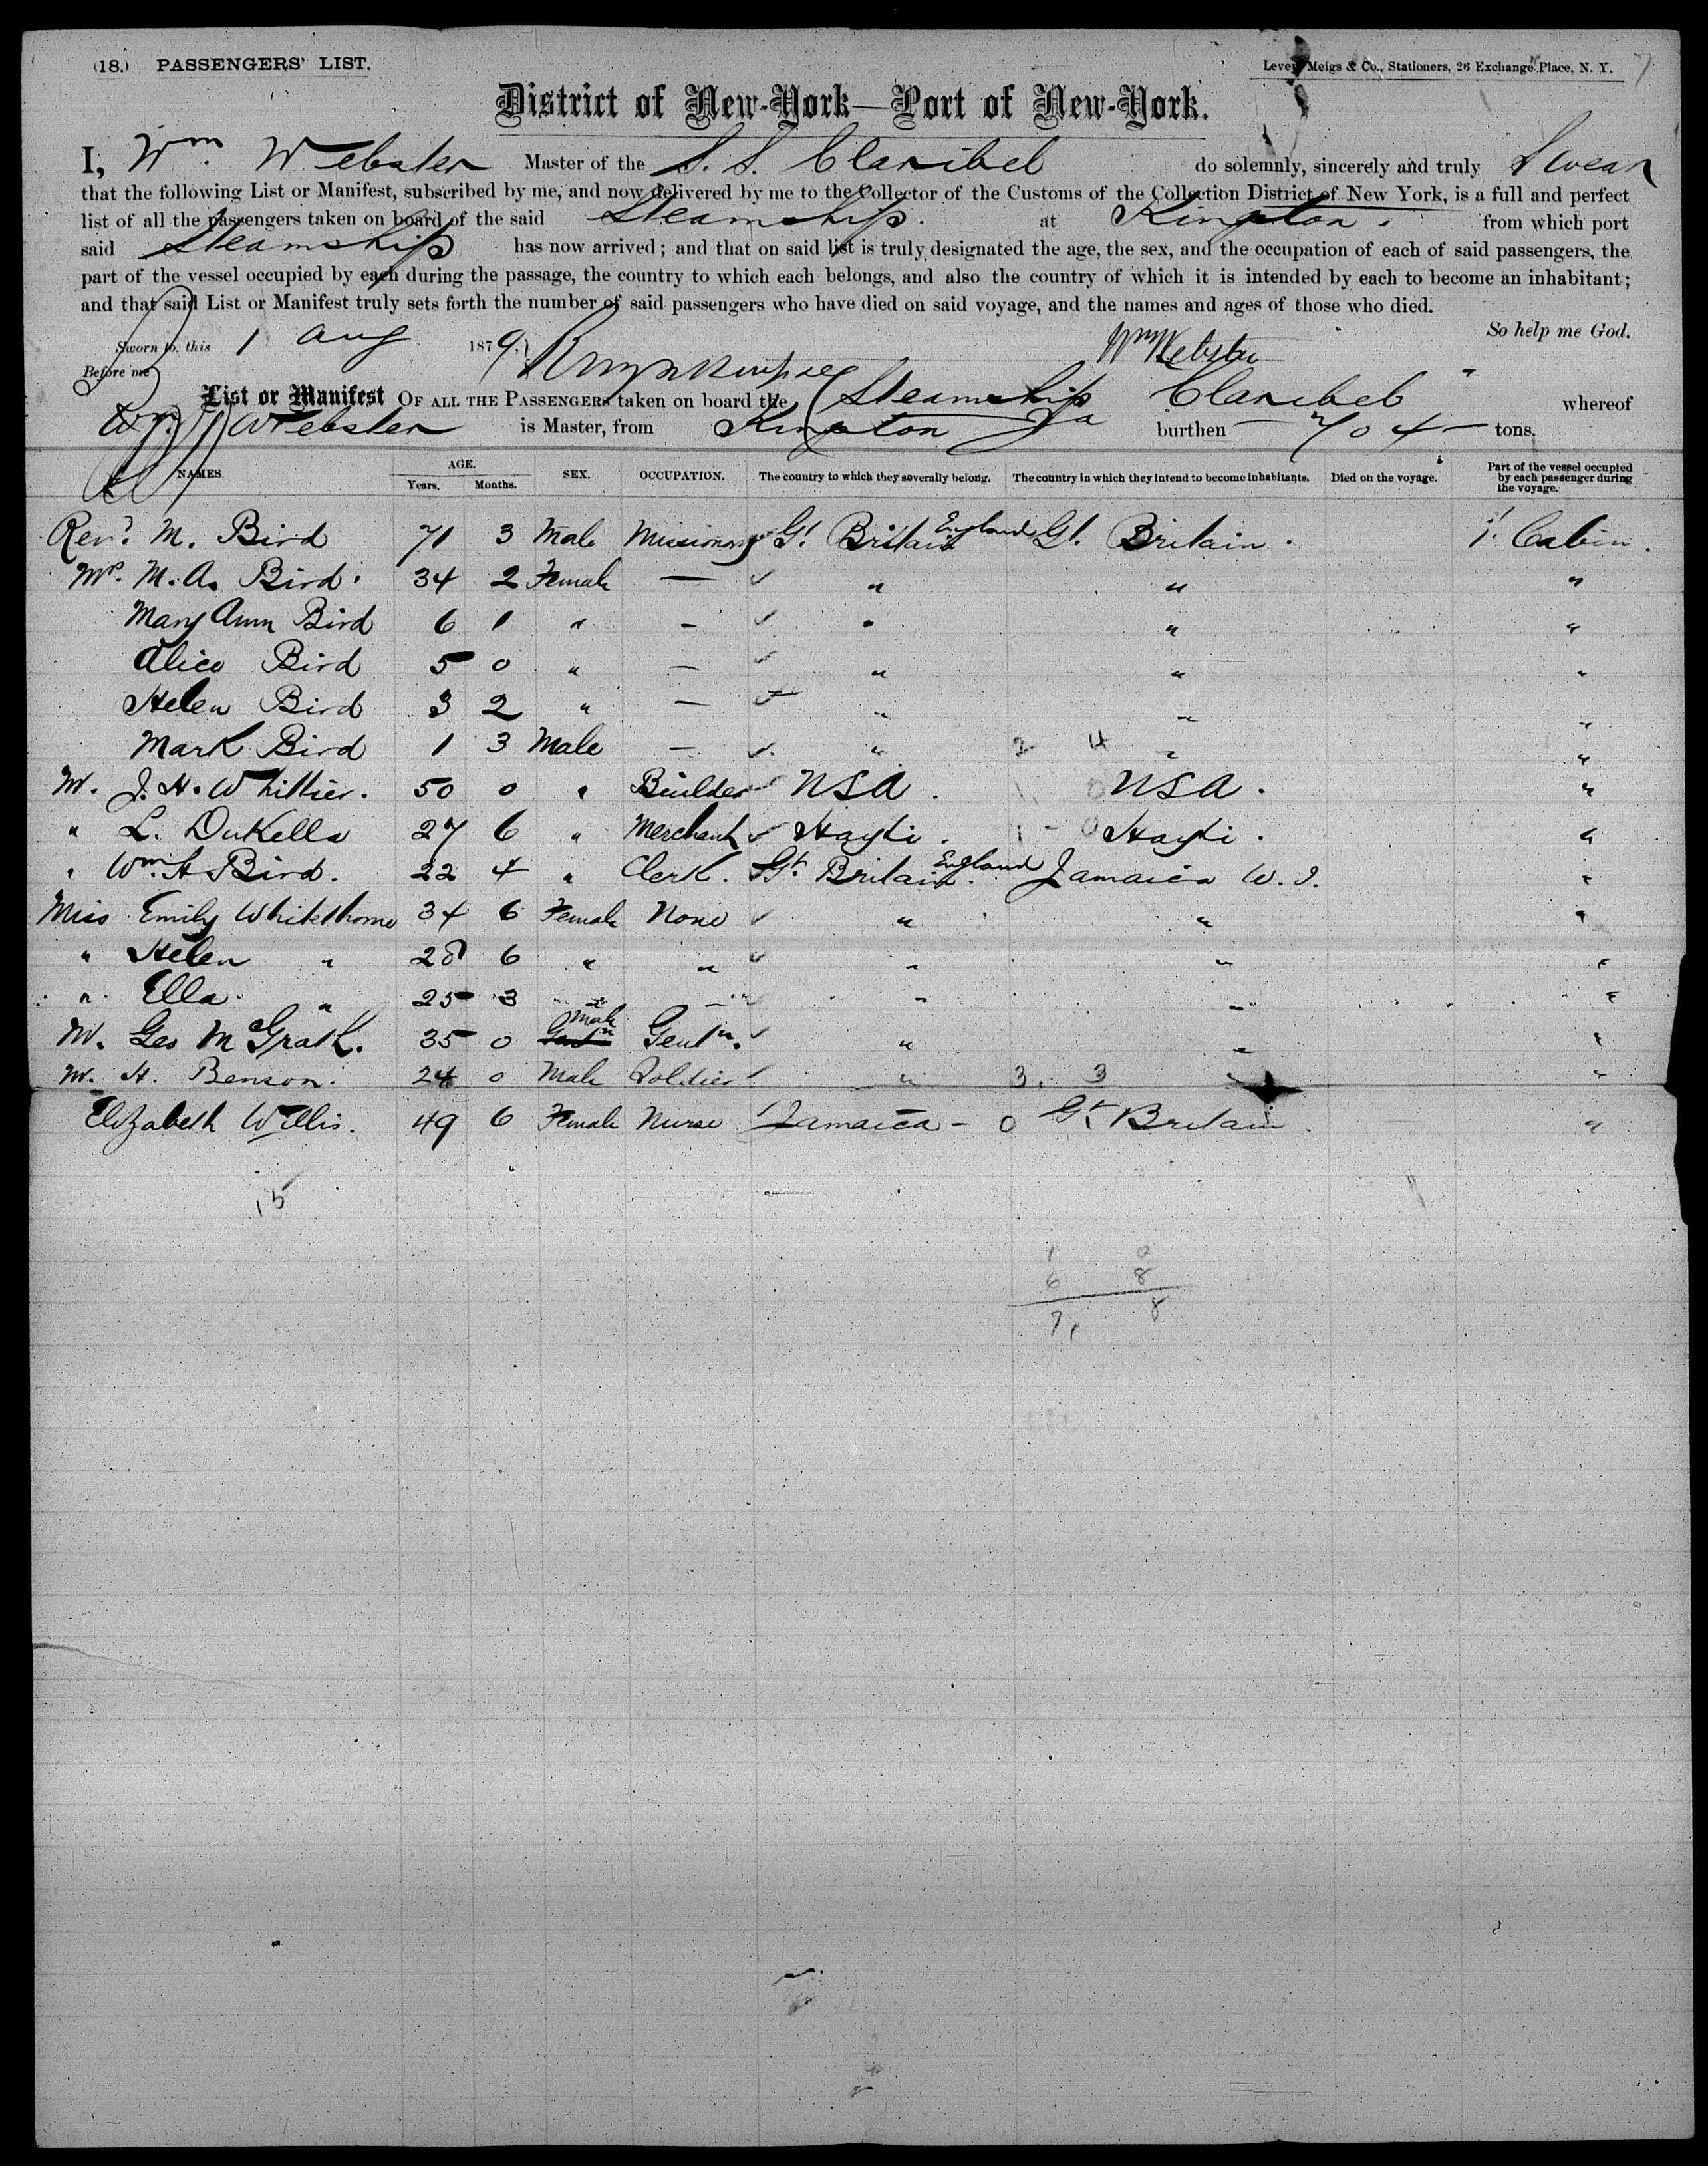 (18.) PASSENGERS' LIST.
Levey Meigs & Co., Stationers, 26 Exchange Place, N. Y. 7
District of New-York—Port of New-York.
I, Wm. Webster Master of the S. S. Claribel do solemnly, sincerely and truly Swear
that the following List or Manifest, subscribed by me, and now delivered by me to the Collector of the Customs of the Collection District of New York, is a full and perfect
list of all the passengers taken on board of the said Steamship. at Kingston. from which port
said Steamship has now arrived; and that on said list is truly designated the age, the sex, and the occupation of each of said passengers, the
part of the vessel occupied by each during the passage, the country to which each belongs, and also the country of which it is intended by each to become an inhabitant;
and that said List or Manifest truly sets forth the number of said passengers who have died on said voyage, and the names and ages of those who died.
So help me God.
Sworn to, this 1 Aug 1879.
Wm Webster
Before me
List or Manifest OF ALL THE PASSENGERS taken on board the Steamship Claribel whereof
Wm. Webster is Master, from Kingston Ja burthen 704 tons.
NAMES. AGE. Years. Months. SEX. OCCUPATION. The country to which they severally belong. The country in which they intend to become inhabitants. Died on the voyage. Part of the vessel occupied by each passenger during the voyage.
Revd. M. Bird 71 3 Male Missionary Gt. Britain England Gt. Britain. 1st Cabin.
Mrs. M. A. Bird. 34 2 Female — " " "
Mary Ann Bird 6 1 " — " " "
Alice Bird 5 0 " — " " "
Helen Bird 3 2 " — " " "
Mark Bird 1 3 Male — " 2 4 " "
Mr. J. H. Whittier. 50 0 " Builder USA. USA. "
" L. DuKella 27 6 " Merchant Hayti. 1 - 0 Hayti. "
" Wm. A Bird. 22 4 " Clerk. Gt. Britain. England Jamaica W. I. "
Miss Emily Whitethorne 34 6 Female None " " "
" Helen " 28 6 " " " " "
" Ella " 25 3 " " " " "
Mr. Geo McGrath. 35 0 Male Gentn. " " "
Mr. H. Benson. 24 0 Male Soldier " 3. 3 " "
Elizabeth Willis. 49 6 Female Nurse Jamaica - 0 Gt Britain. "
15
1 0
6 8
7, 8